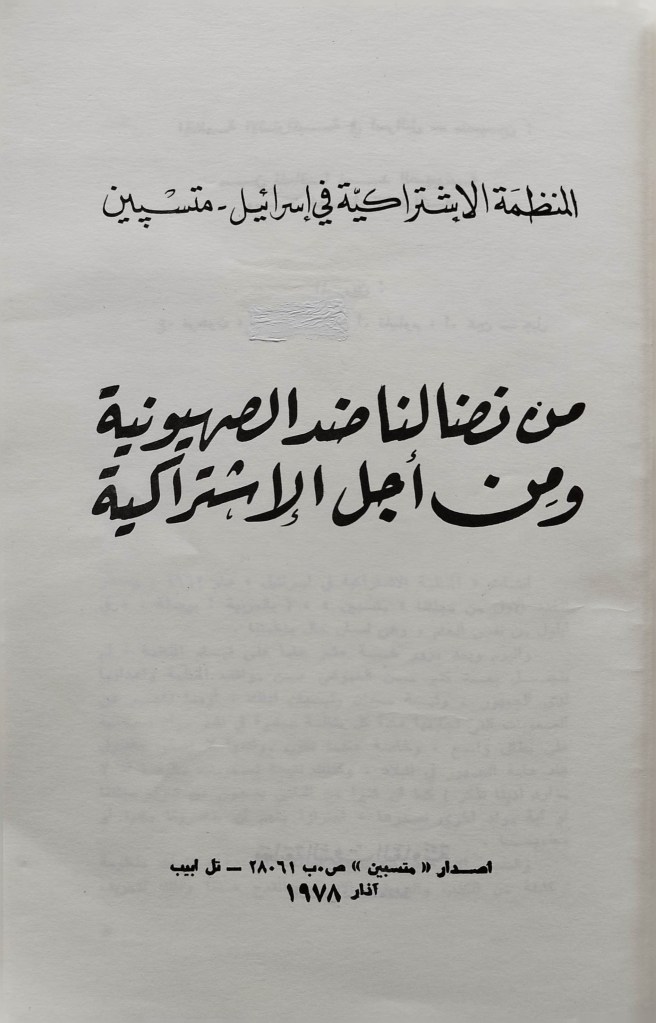 المنظمَة الإشتراكيّة في إسرائيل - متسْپين
من نضالنا ضد الصهيونية
ومِن أجل الإشتراكية
اصدار « متسبين » ص.ب ٢٨٠٦١ — تل ابيب
آذار ١٩٧٨